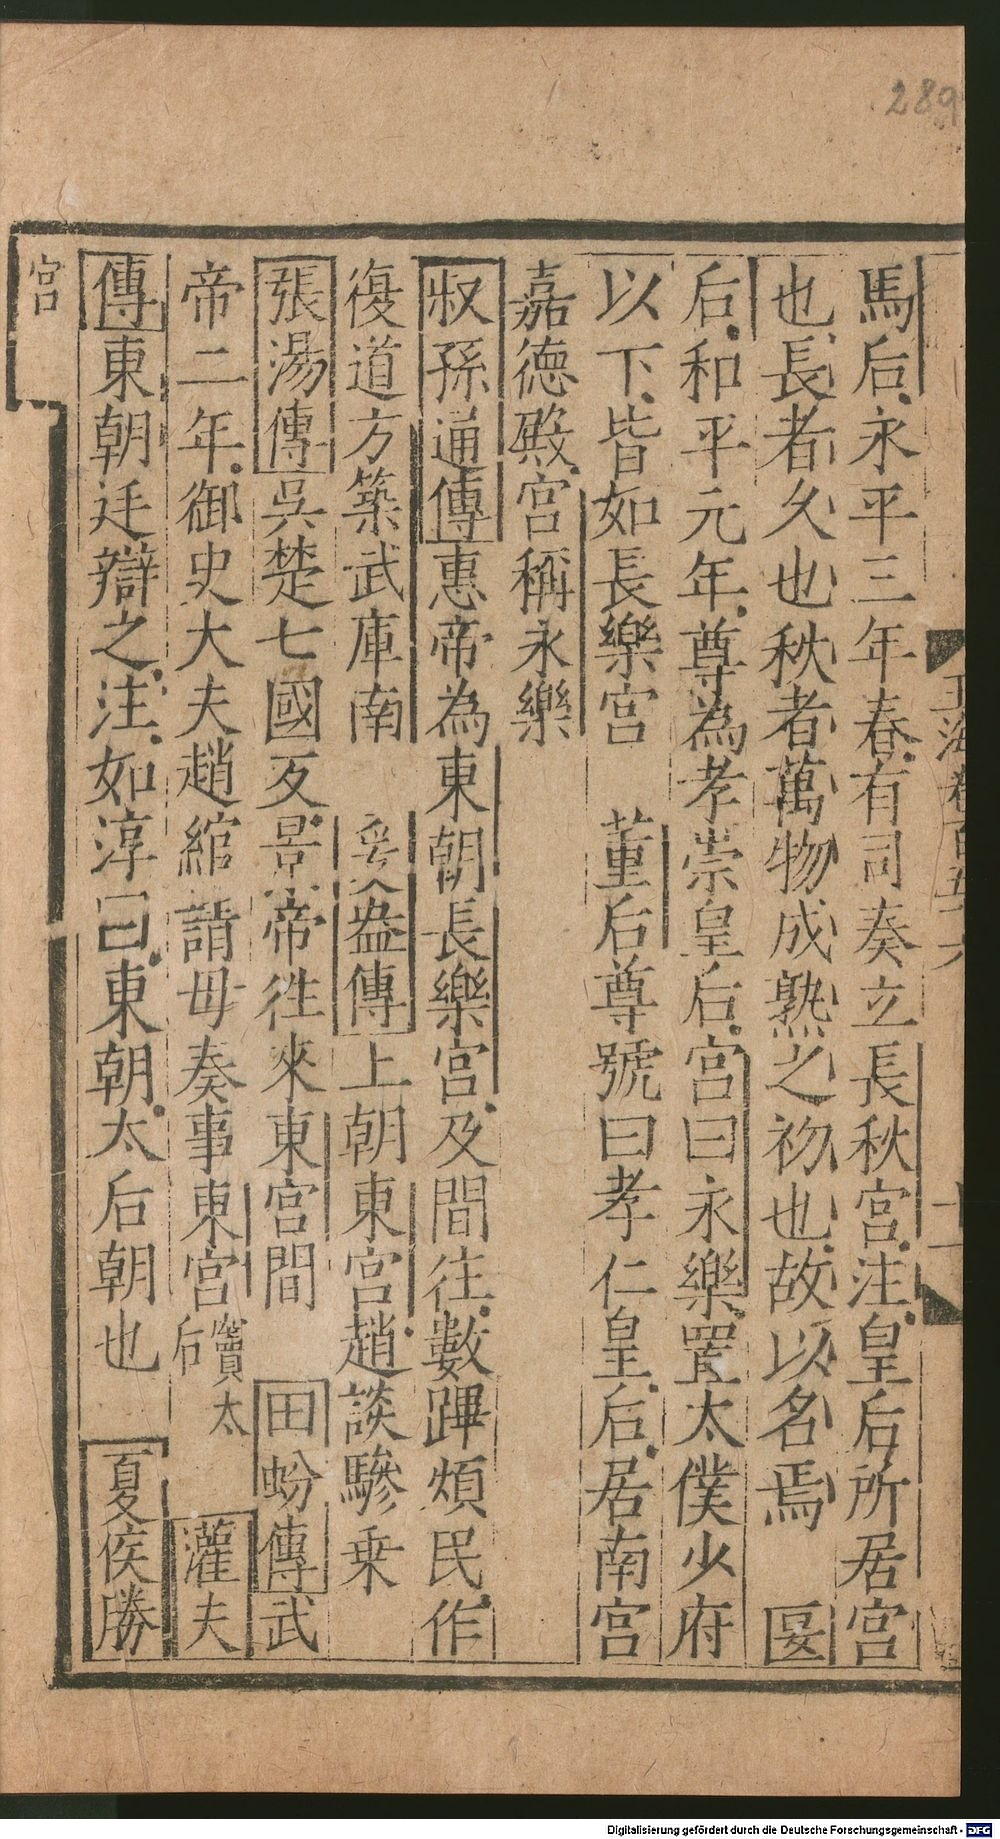 289
玉海卷百五十六
十一
馬后永平三年春有司奏立長秋宮注皇后所居宮
也長者久也秋者萬物成熟之初也故以名焉 匽
后和平元年尊為孝崇皇后宮曰永樂置太僕少府
以下皆如長樂宮 董后尊號曰孝仁皇后居南宮
嘉德殿宮稱永樂
叔孫通傳惠帝為東朝長樂宮及間往數蹕煩民作
復道方築武庫南 爰盎傳上朝東宮趙談驂乘
張湯傳吳楚七國反景帝往來東宮間 田蚡傳武
帝二年御史大夫趙綰請毋奏事東宮竇太后 灌夫
傳東朝廷辯之注如淳曰東朝太后朝也 夏侯勝
宮
Digitalisierung gefördert durch die Deutsche Forschungsgemeinschaft - DFG